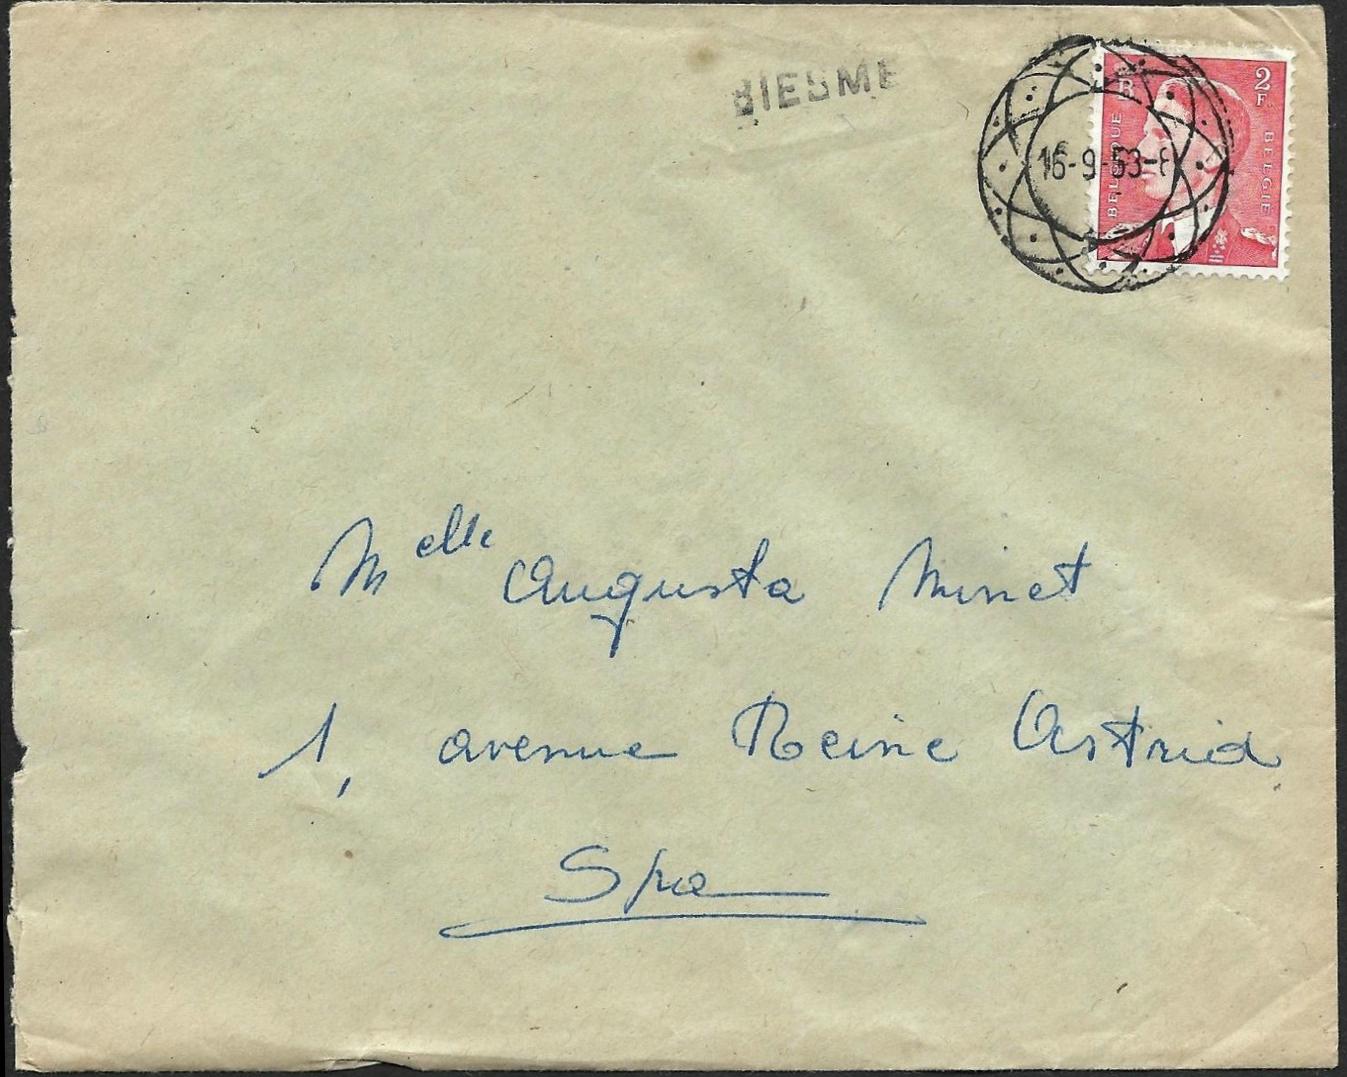 BIESME
16-9-53-8
B
2F
BELGIQUE
BELGIE
Melle Augusta Minet
1, avenue Reine Astrid
Spa